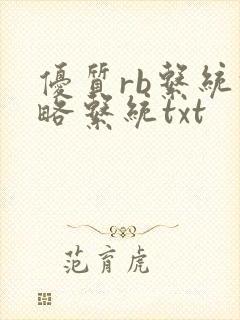 優質rb繫統
略繫統txt
范育虎